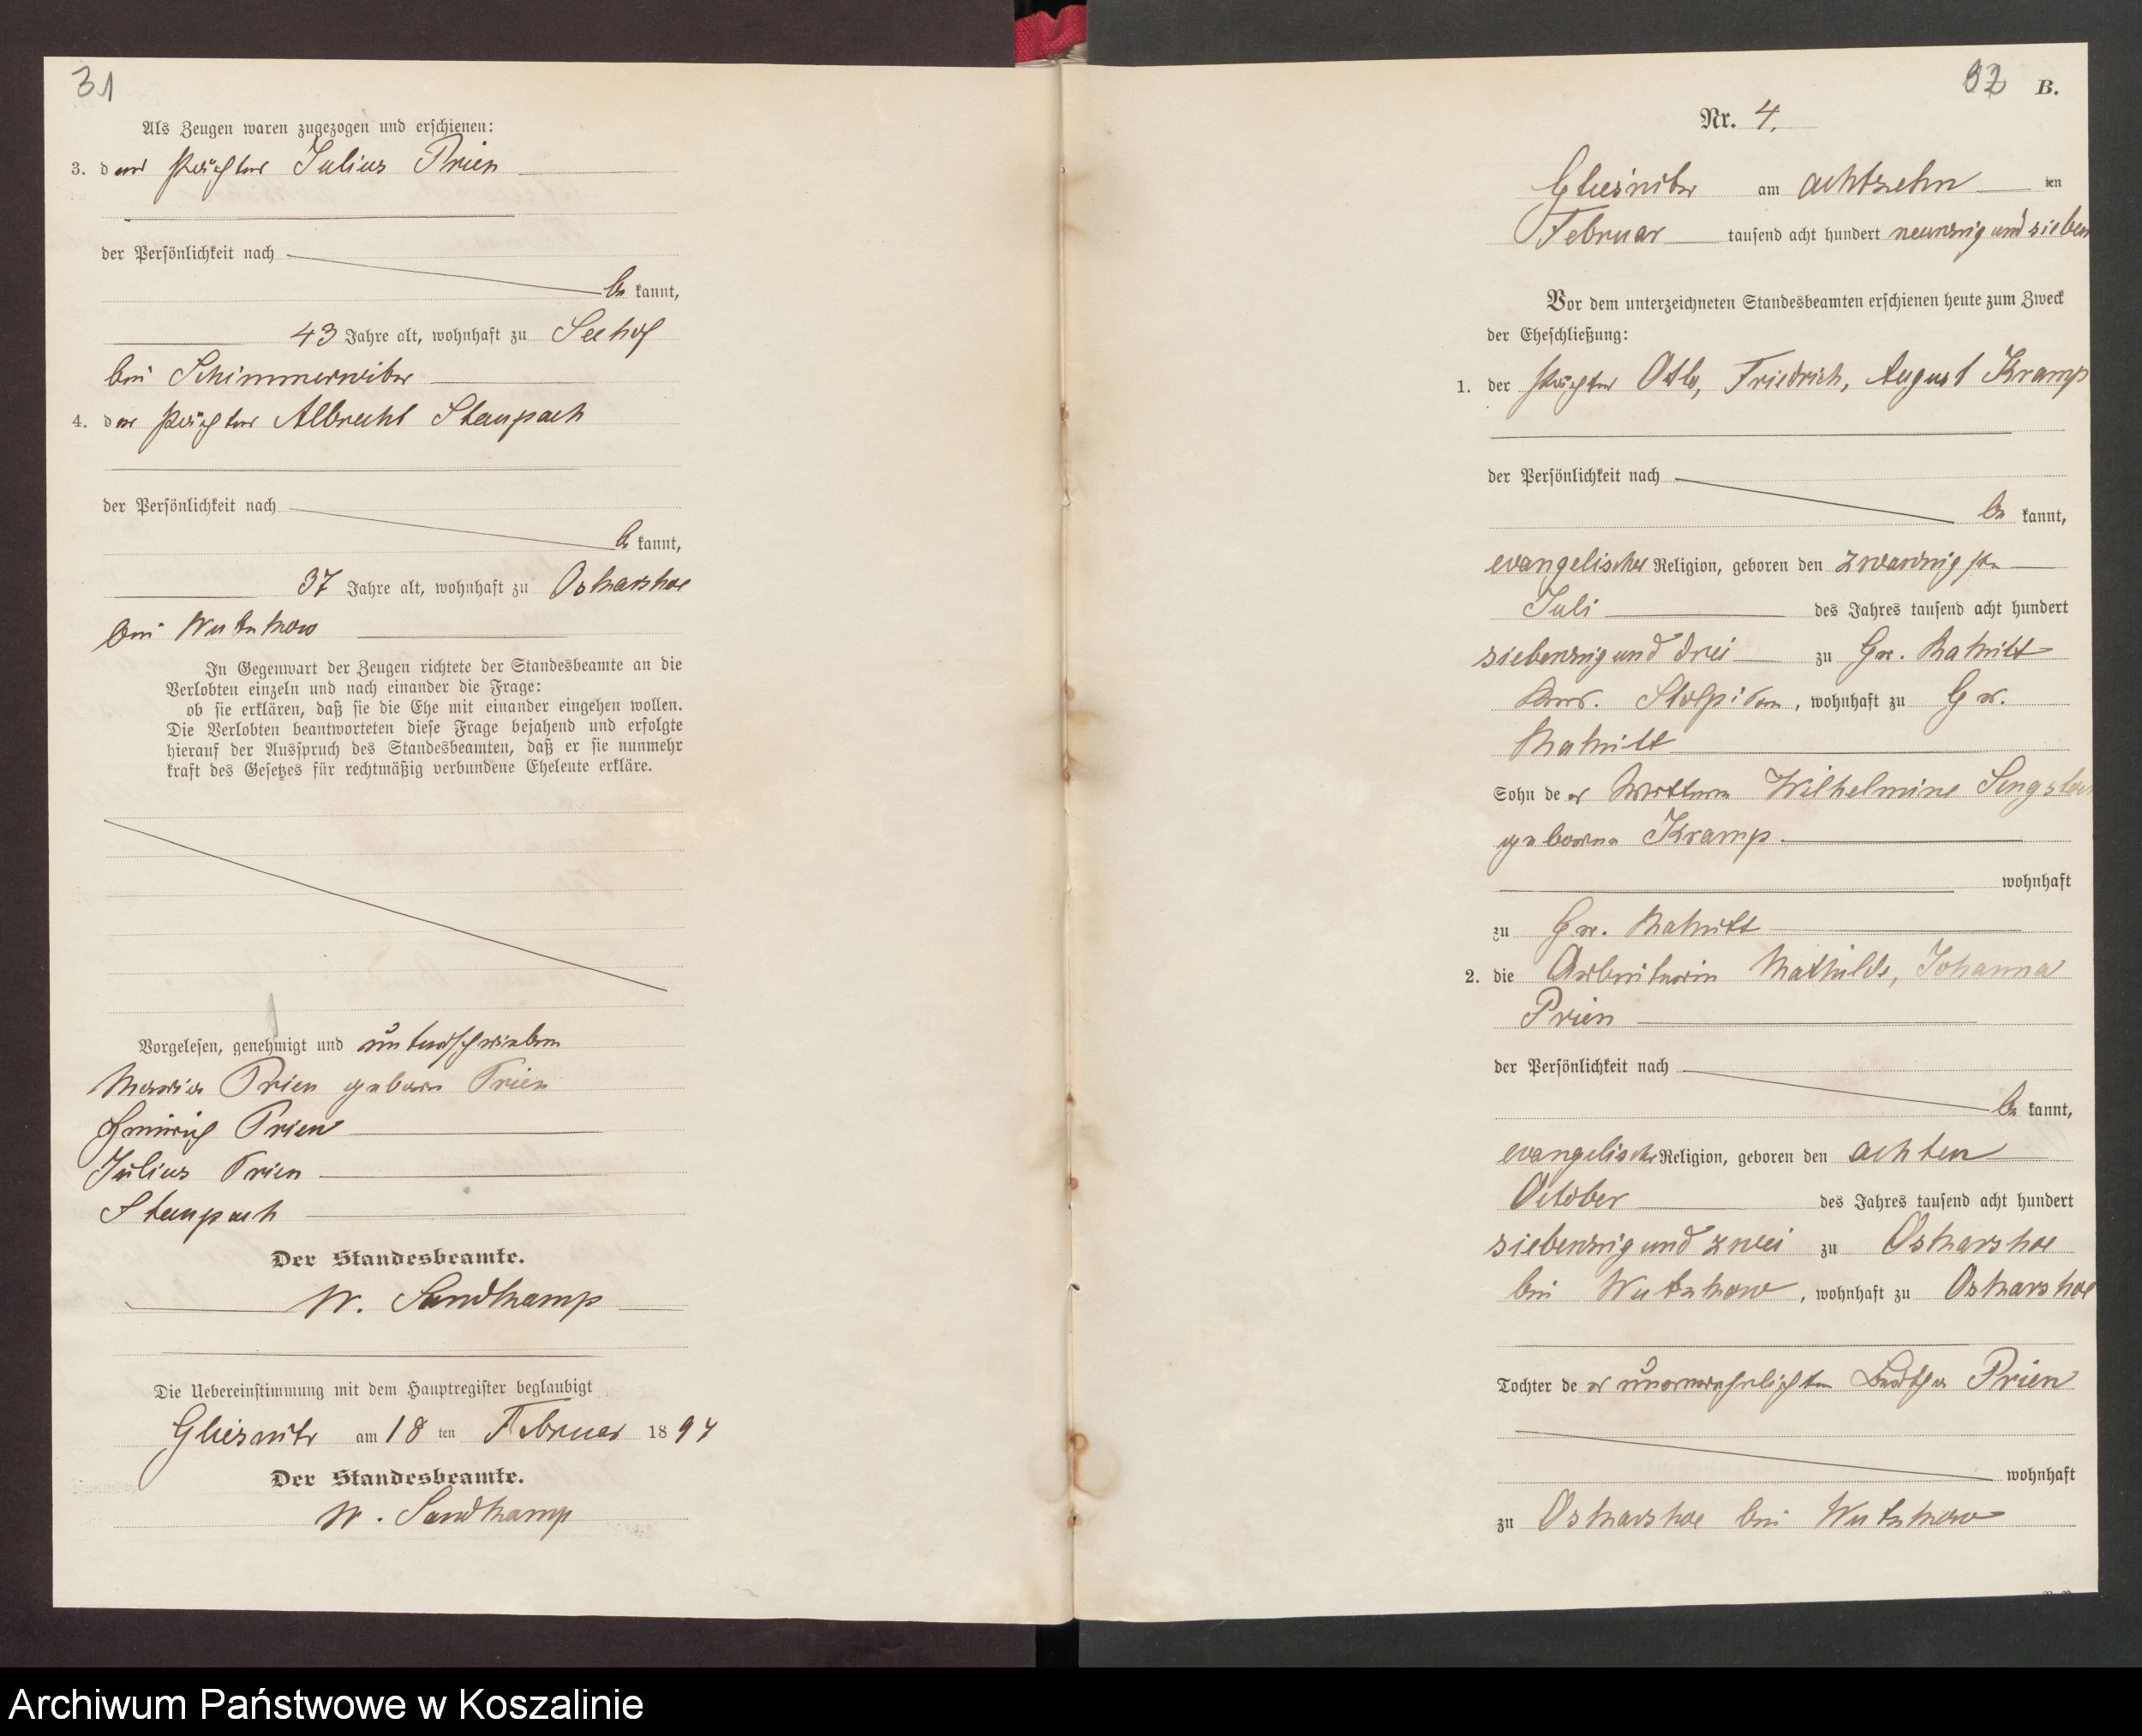 31
Als Zeugen waren zugezogen und erschienen:
3. der Pächter Julius Prien
der Persönlichkeit nach
be kannt,
43 Jahre alt, wohnhaft zu Seehof
bei Schimmerwitz
4. der Pächter Albrecht Staupach
der Persönlichkeit nach
be kannt,
37 Jahre alt, wohnhaft zu Oskarshoe
bei Wutzkow
In Gegenwart der Zeugen richtete der Standesbeamte an die
Verlobten einzeln und nach einander die Frage:
ob sie erklären, daß sie die Ehe mit einander eingehen wollen.
Die Verlobten beantworteten diese Frage bejahend und erfolgte
hierauf der Ausspruch des Standesbeamten, daß er sie nunmehr
kraft des Gesetzes für rechtmäßig verbundene Eheleute erkläre.
Vorgelesen, genehmigt und unterschrieben
Maria Prien geboren Prien
Heinrich Prien
Julius Prien
Staupach
Der Standesbeamte.
W. Sandkamp
Die Uebereinstimmung mit dem Hauptregister beglaubigt
Gliesnitz am 18 ten Februar 1897
Der Standesbeamte.
W. Sandkamp
32 B.
Nr. 4.
Gliesnitz am achtzehn ten
Februar tausend acht hundert neunzig und sieben
Vor dem unterzeichneten Standesbeamten erschienen heute zum Zweck
der Eheschließung:
1. der Pächter Otto, Friedrich, August Kramp
der Persönlichkeit nach
be kannt,
evangelischer Religion, geboren den zwanzigsten
Juli des Jahres tausend acht hundert
siebenzig und drei zu Gr.
wohnhaft zu Gr.
Sohn de er Wilhelmine
geborne Kramp
wohnhaft
zu Gr.
2. die Arbeiterin Mathilde, Johanna
Prien
der Persönlichkeit nach
be kannt,
evangelischer Religion, geboren den achten
October des Jahres tausend acht hundert
siebenzig und zwei zu Oskarshoe
bei Wutzkow, wohnhaft zu Oskarshoe
Tochter de er unverehelichten Bertha Prien
wohnhaft
zu Oskarshoe bei Wutzkow
Archiwum Państwowe w Koszalinie